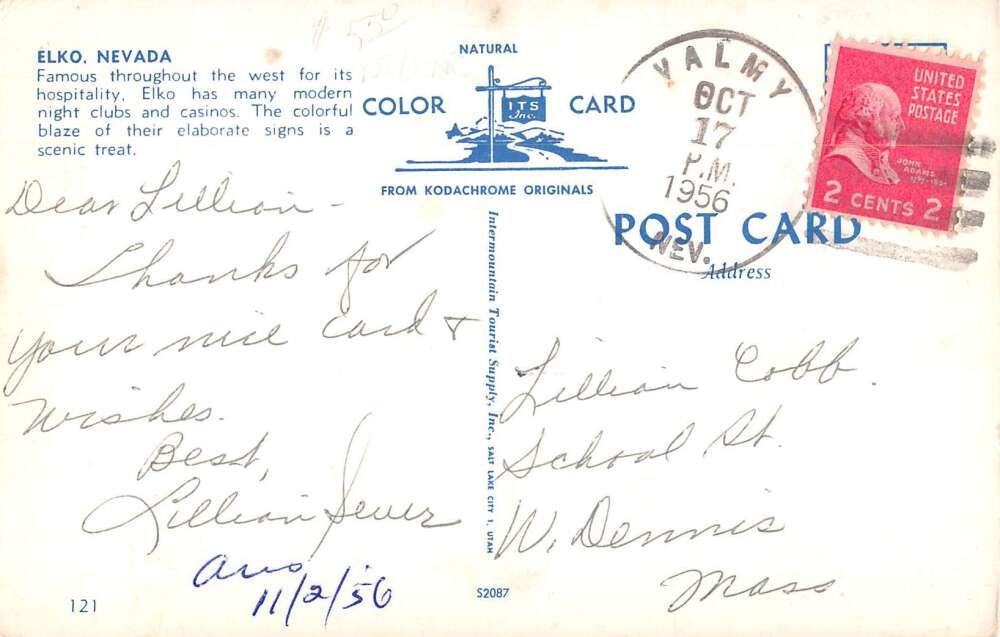 ELKO, NEVADA
Famous throughout the west for its
hospitality, Elko has many modern
night clubs and casinos. The colorful
blaze of their elaborate signs is a
scenic treat.
NATURAL
COLOR CARD
ITS
Inc.
FROM KODACHROME ORIGINALS
VALMY
OCT
17
P.M.
1956
NEV.
UNITED
STATES
POSTAGE
JOHN
ADAMS
2 CENTS 2
POST CARD
Address
Dear Lillian -
Thanks for
your nice card &
wishes.
Best,
Lillian
Intermountain Tourist Supply, Inc., SALT LAKE CITY 1, UTAH
Lillian Cobb.
School St.
W. Dennis
Mass
11/2/56
121
S2087